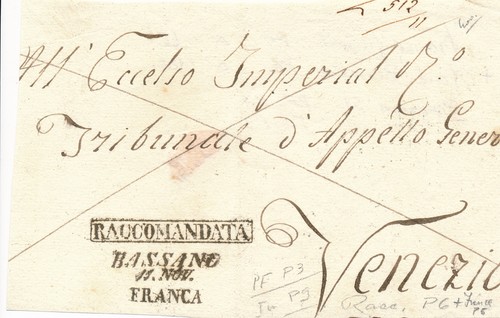 512
11
All' Eccelso Imperial R.º
Tribunale d'Appello Gener
RACCOMANDATA
BASSANO
11. NOV.
FRANCA
Venezia
PF P3
P9
Racc. P6 + France
P5